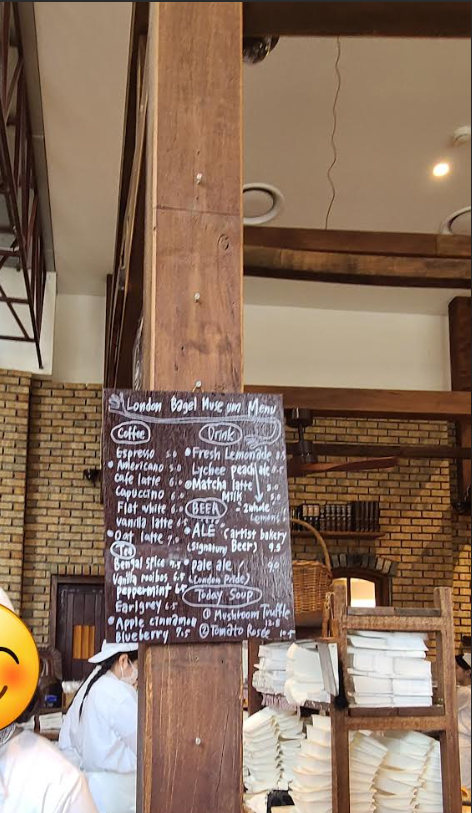 London Bagel Museum Menu
Coffee
Espresso 5.0
Americano 5.0
Cafe latte
Capuccino
Flat white
vanilla latte
Oat latte
Tea
Bengal spice
Vanilla rooibos
peppermint
Earlgrey
Apple cinnamon
Blueberry 7.5
Drink
Fresh Lemonade
Lychee peach ade
Matcha latte
Milk
2whole
Lemons
BEER
ALE (artist bakery
signature Beer) 9.5
pale ale 9.0
(London Pride)
Today Soup
① Mushroom Truffle
② Tomato Rosée